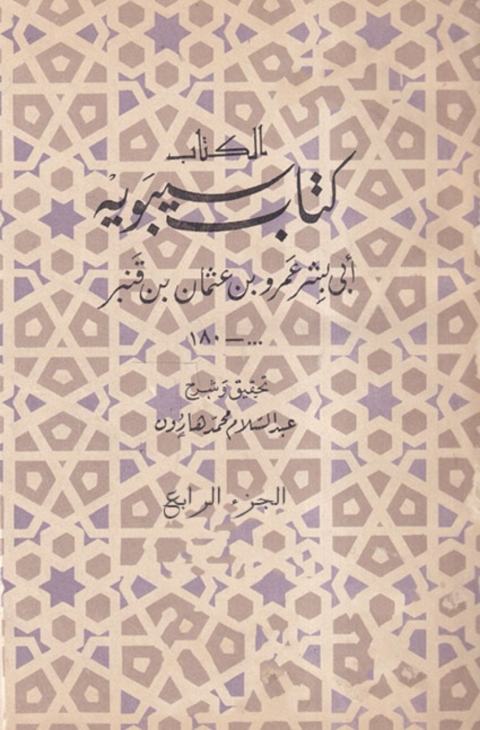 الكتاب
كتاب سيبويه
أبي بشر عمرو بن عثمان بن قنبر
... — ١٨٠
تحقيق وشرح
عبد السلام محمد هارون
الجزء الرابع